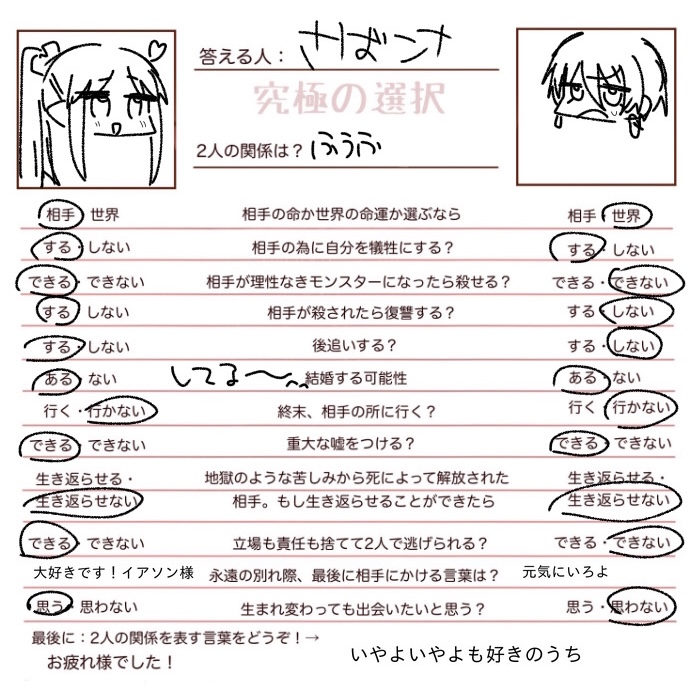 答える人：さばーなna
究極の選択
2人の関係は？ ふうふ
相手・世界 相手の命か世界の命運か選ぶなら 相手・世界
する・しない 相手の為に自分を犠牲にする？ する・しない
できる・できない 相手が理性なきモンスターになったら殺せる？ できる・できない
する・しない 相手が殺されたら復讐する？ する・しない
する・しない 後追いする？ する・しない
ある・ない してる〜 結婚する可能性 ある・ない
行く・行かない 終末、相手の所に行く？ 行く・行かない
できる・できない 重大な嘘をつける？ できる・できない
生き返らせる・ 地獄のような苦しみから死によって解放された 生き返らせる・
生き返らせない 相手。もし生き返らせることができたら 生き返らせない
できる・できない 立場も責任も捨てて2人で逃げられる？ できる・できない
大好きです！イアソン様 永遠の別れ際、最後に相手にかける言葉は？ 元気にいろよ
思う・思わない 生まれ変わっても出会いたいと思う？ 思う・思わない
最後に：2人の関係を表す言葉をどうぞ！→
お疲れ様でした！ いやよいやよも好きのうち